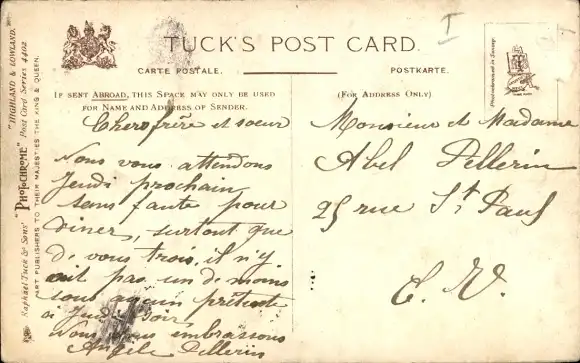 TUCK'S POST CARD.
CARTE POSTALE.
POSTKARTE.
IF SENT ABROAD, THIS SPACE MAY ONLY BE USED
FOR NAME AND ADDRESS OF SENDER.
(FOR ADDRESS ONLY)
Raphael Tuck & Sons' "PHOTOCHROME" Post Card Series 4402 "HIGHLAND & LOWLAND."
ART PUBLISHERS TO THEIR MAJESTIES THE KING & QUEEN.
I
Chers frère et soeur
Nous vous attendons
Jeudi prochain
sans faute pour
diner, surtout que
de vous trois, il n'y
ait pas un de moins
sous aucun prétexte
a Jeudi soir
Nous vous embrassons
Angèle Pellerin
Monsieur et Madame
Abel Pellerin
25 rue St Paul
E. V.